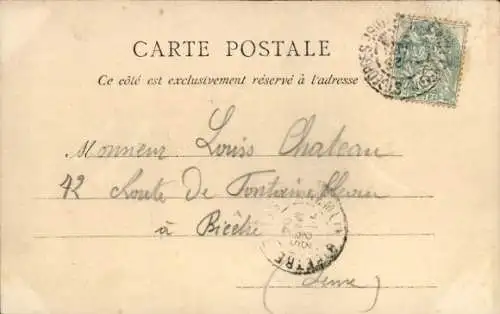 CARTE POSTALE
Ce côté est exclusivement réservé à l'adresse
Monsieur Louis Chateau
42 Route de Fontainebleau
à Bicêtre
(Seine)